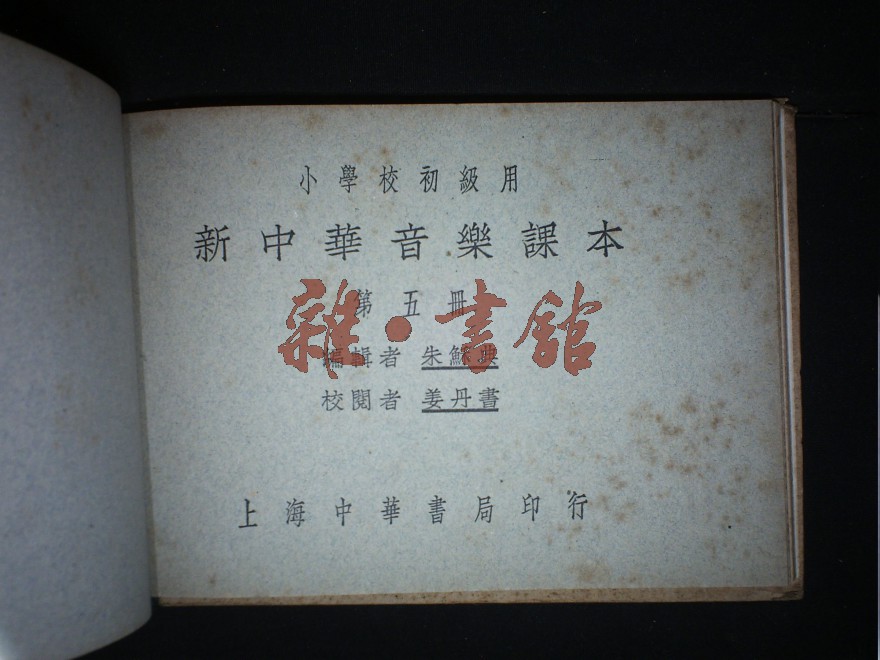 小學校初級用
新中華音樂課本
第五冊
雜·書館
編輯者 朱穌典
校閱者 姜丹書
上海中華書局印行